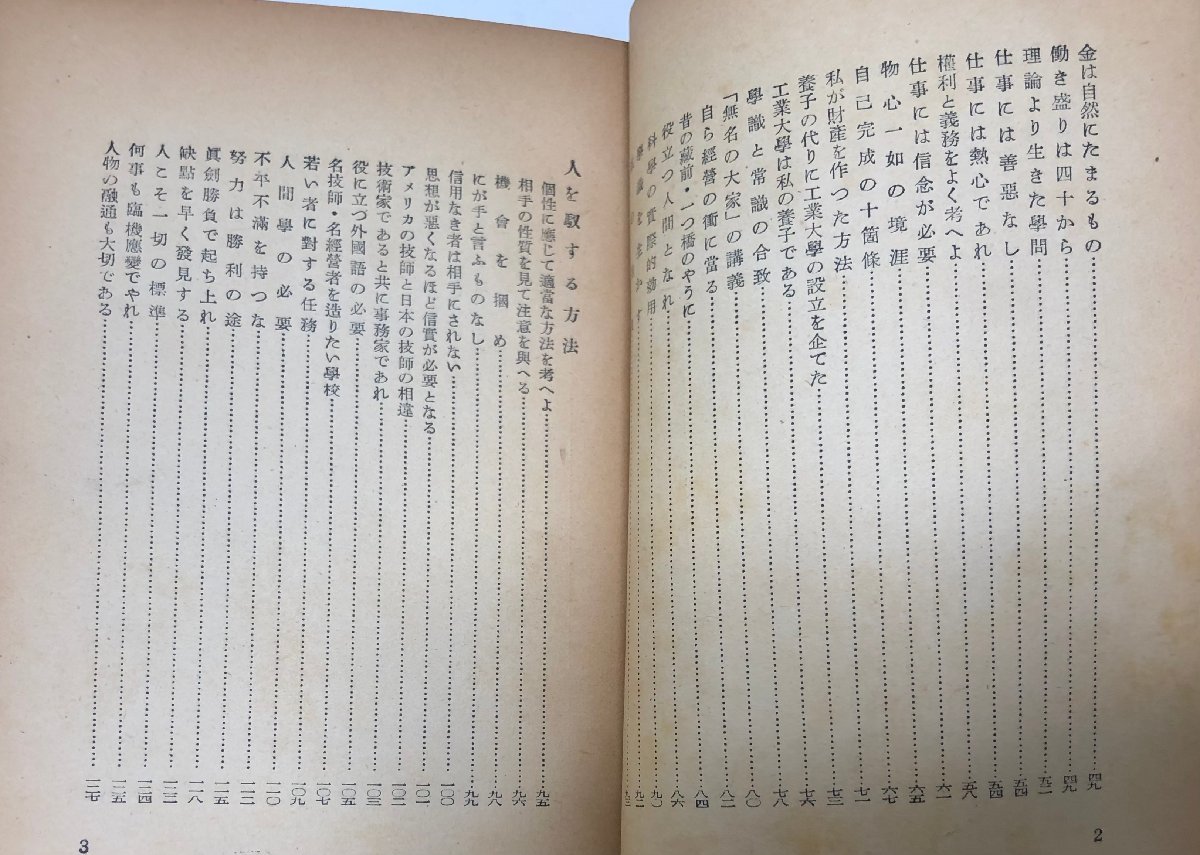 金は自然にたまるもの……四九
働き盛りは四十から……四九
理論より生きた學問……五一
仕事には善惡なし……五四
仕事には熱心であれ……五四
權利と義務をよく考へよ……五八
仕事には信念が必要……六一
物心一如の境涯……六七
自己完成の十箇條……七一
私が財産を作つた方法……七三
養子の代りに工業大學の設立を企てた……七六
工業大學は私の養子である……七八
學識と常識の合致……八〇
「無名の大家」の講義……八二
自ら經營の衝に當る……八四
昔の藏前・一つ橋のやうに……八六
役立つ人間となれ……九〇
科學の實際的効用……九二
2
人を馭する方法
個性に應じて適當な方法を考へよ……九五
相手の性質を見て注意を與へる……九六
機會を摑め……九八
にが手と言ふものなし……九九
信用なき者は相手にされない……一〇〇
思想が惡くなるほど信實が必要となる……一〇一
アメリカの技師と日本の技師の相違……一〇二
技術家であると共に事務家であれ……一〇三
役に立つ外國語の必要……一〇五
名技師・名經營者を造りたい學校……一〇七
若い者に對する任務……一〇九
人間學の必要……一一〇
不平不滿を持つな……
努力は勝利の途……一一五
眞劍勝負で起ち上れ……一一八
缺點を早く發見する……
人こそ一切の標準……一二四
何事も臨機應變でやれ……一二五
人物の融通も大切である……一二七
3